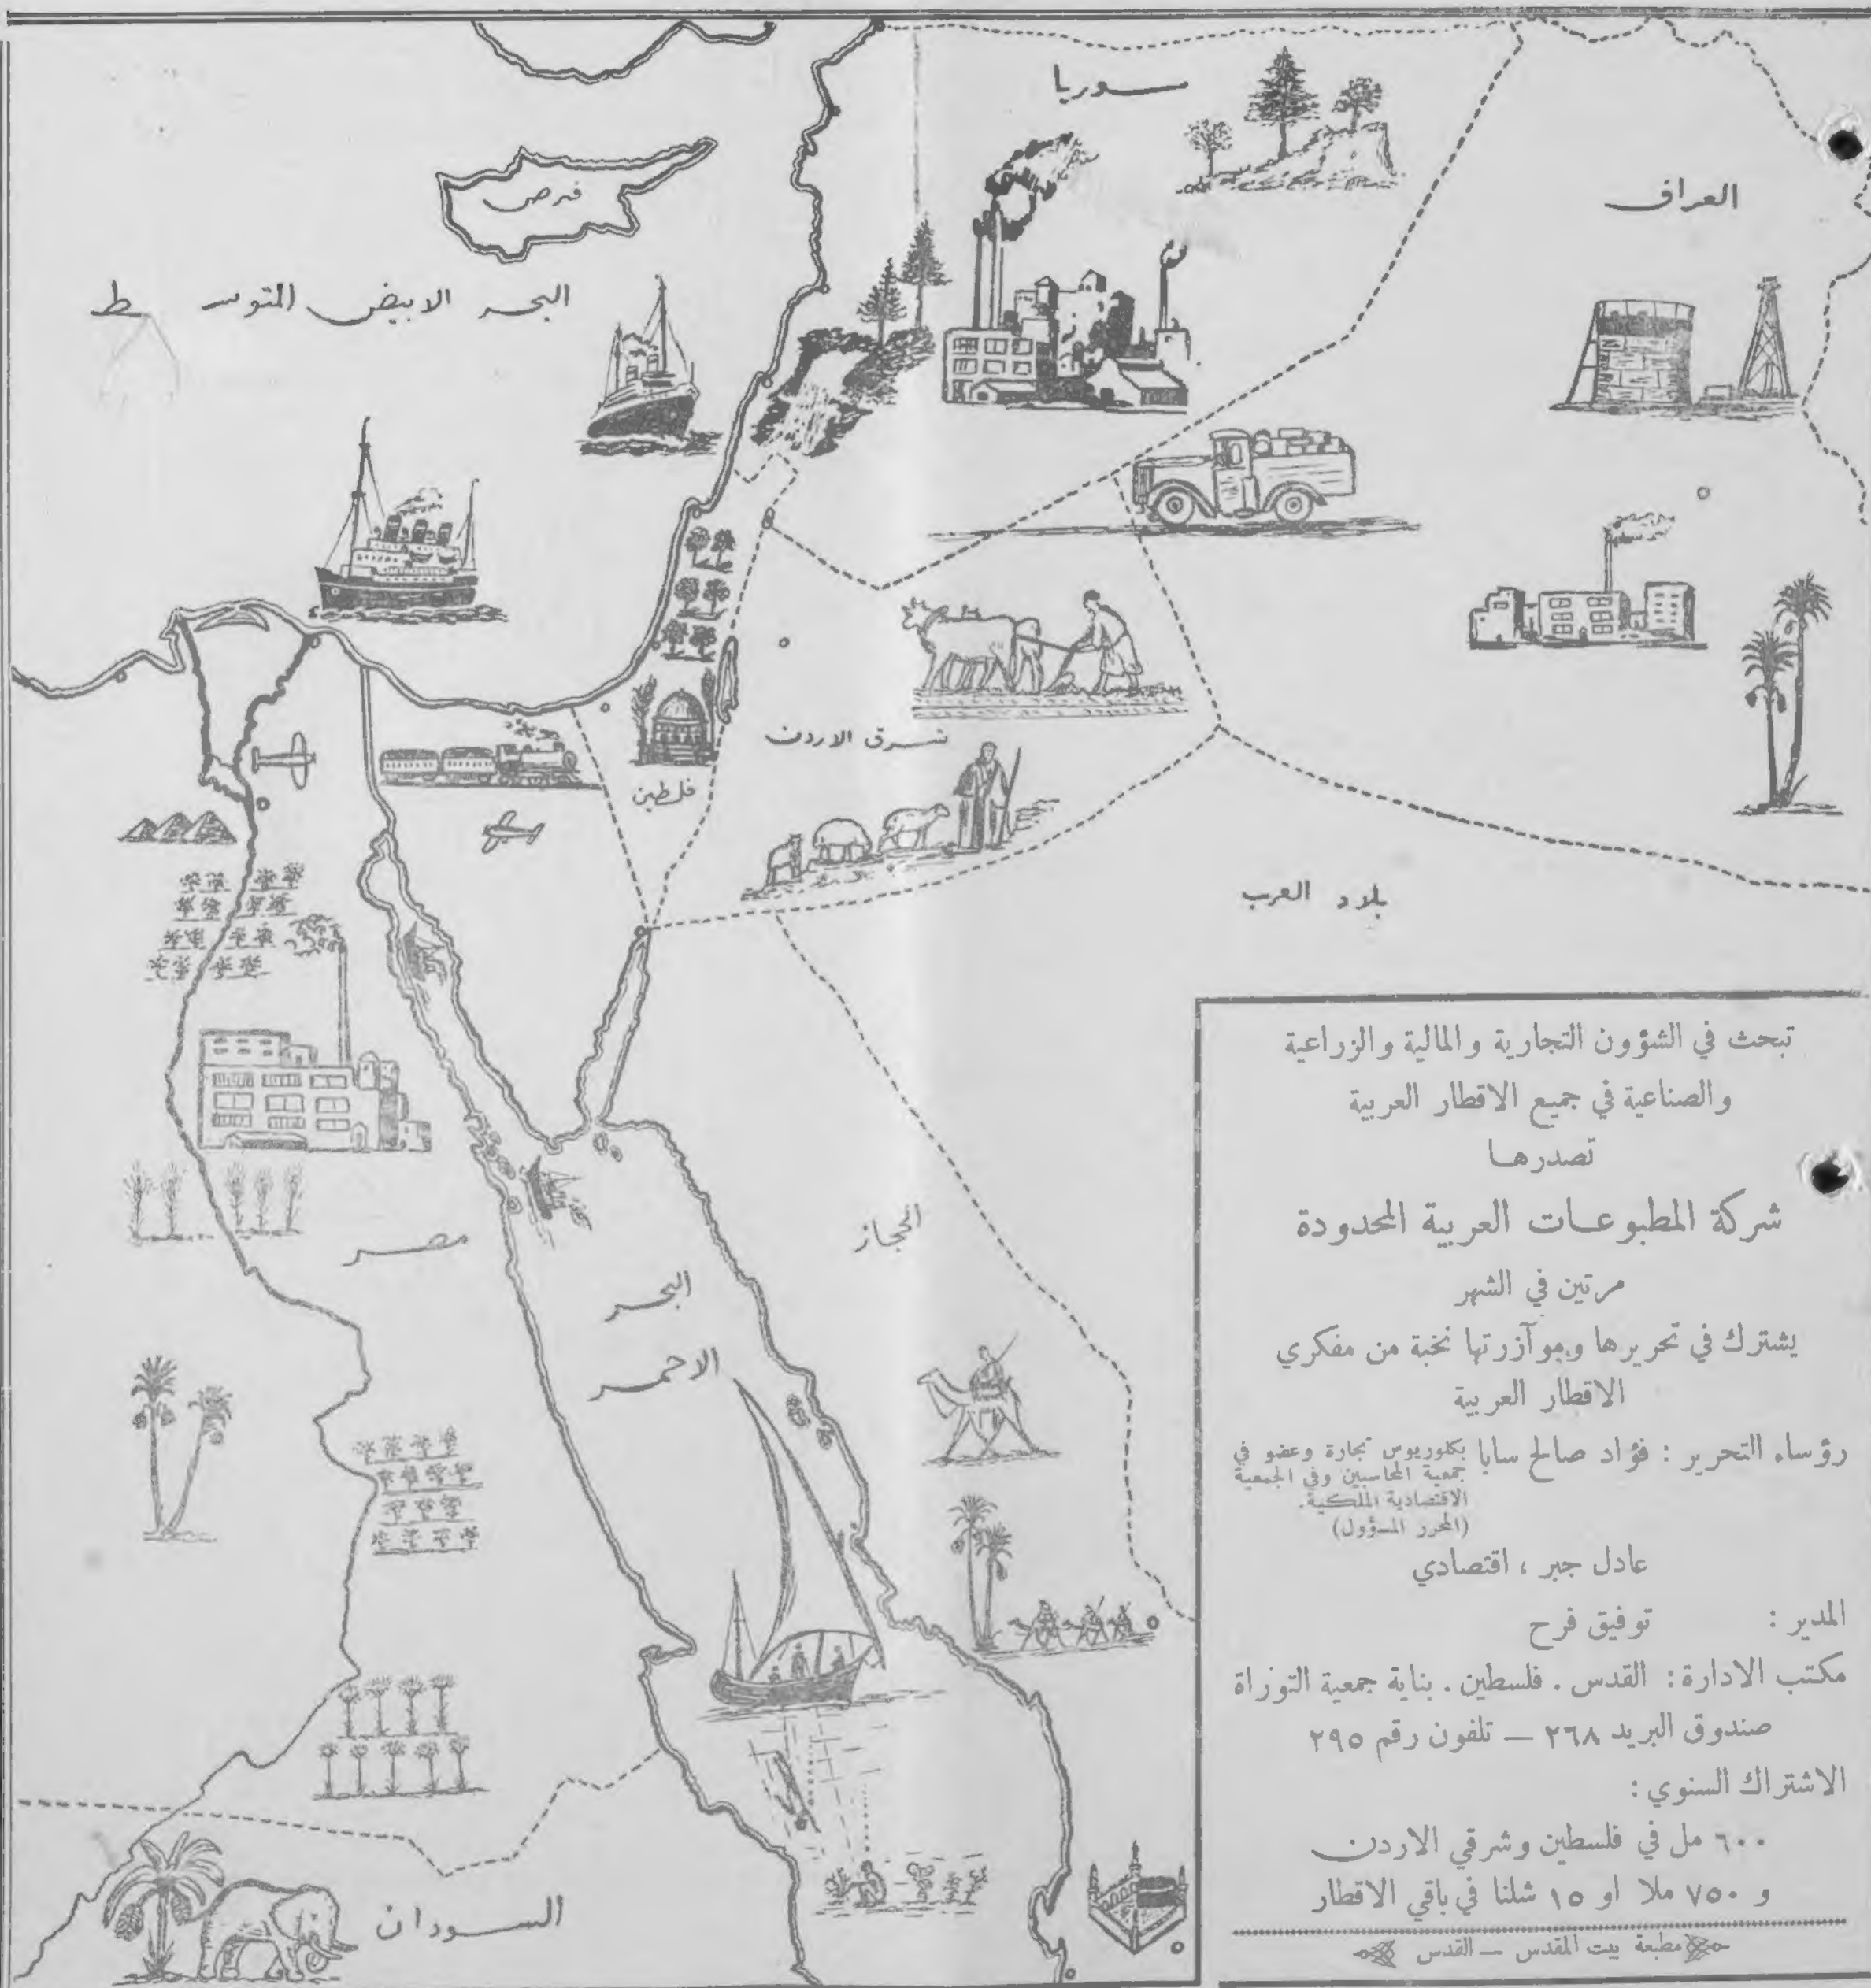 سوريا
العراق
قبرص
البحر الابيض المتوسط
شرق الاردن
فلسطين
بلاد العرب
مصر
الحجاز
البحر
الاحمر
السودان
تبحث في الشؤون التجارية والمالية والزراعية
والصناعية في جميع الاقطار العربية
تصدرها
شركة المطبوعات العربية المحدودة
مرتين في الشهر
يشترك في تحريرها وموآزرتها نخبة من مفكري
الاقطار العربية
رؤساء التحرير : فؤاد صالح سابا بكلوريوس تجارة وعضو في
جمعية المحاسبين وفي الجمعية
الاقتصادية الملكية.
(المحرر المسؤول)
عادل جبر ، اقتصادي
المدير : توفيق فرح
مكتب الادارة : القدس . فلسطين . بناية جمعية التوراة
صندوق البريد ٢٦٨ — تلفون رقم ٢٩٥
الاشتراك السنوي :
٦٠٠ مل في فلسطين وشرقي الاردن
و ٧٥٠ ملا او ١٥ شلنا في باقي الاقطار
مطبعة بيت المقدس — القدس